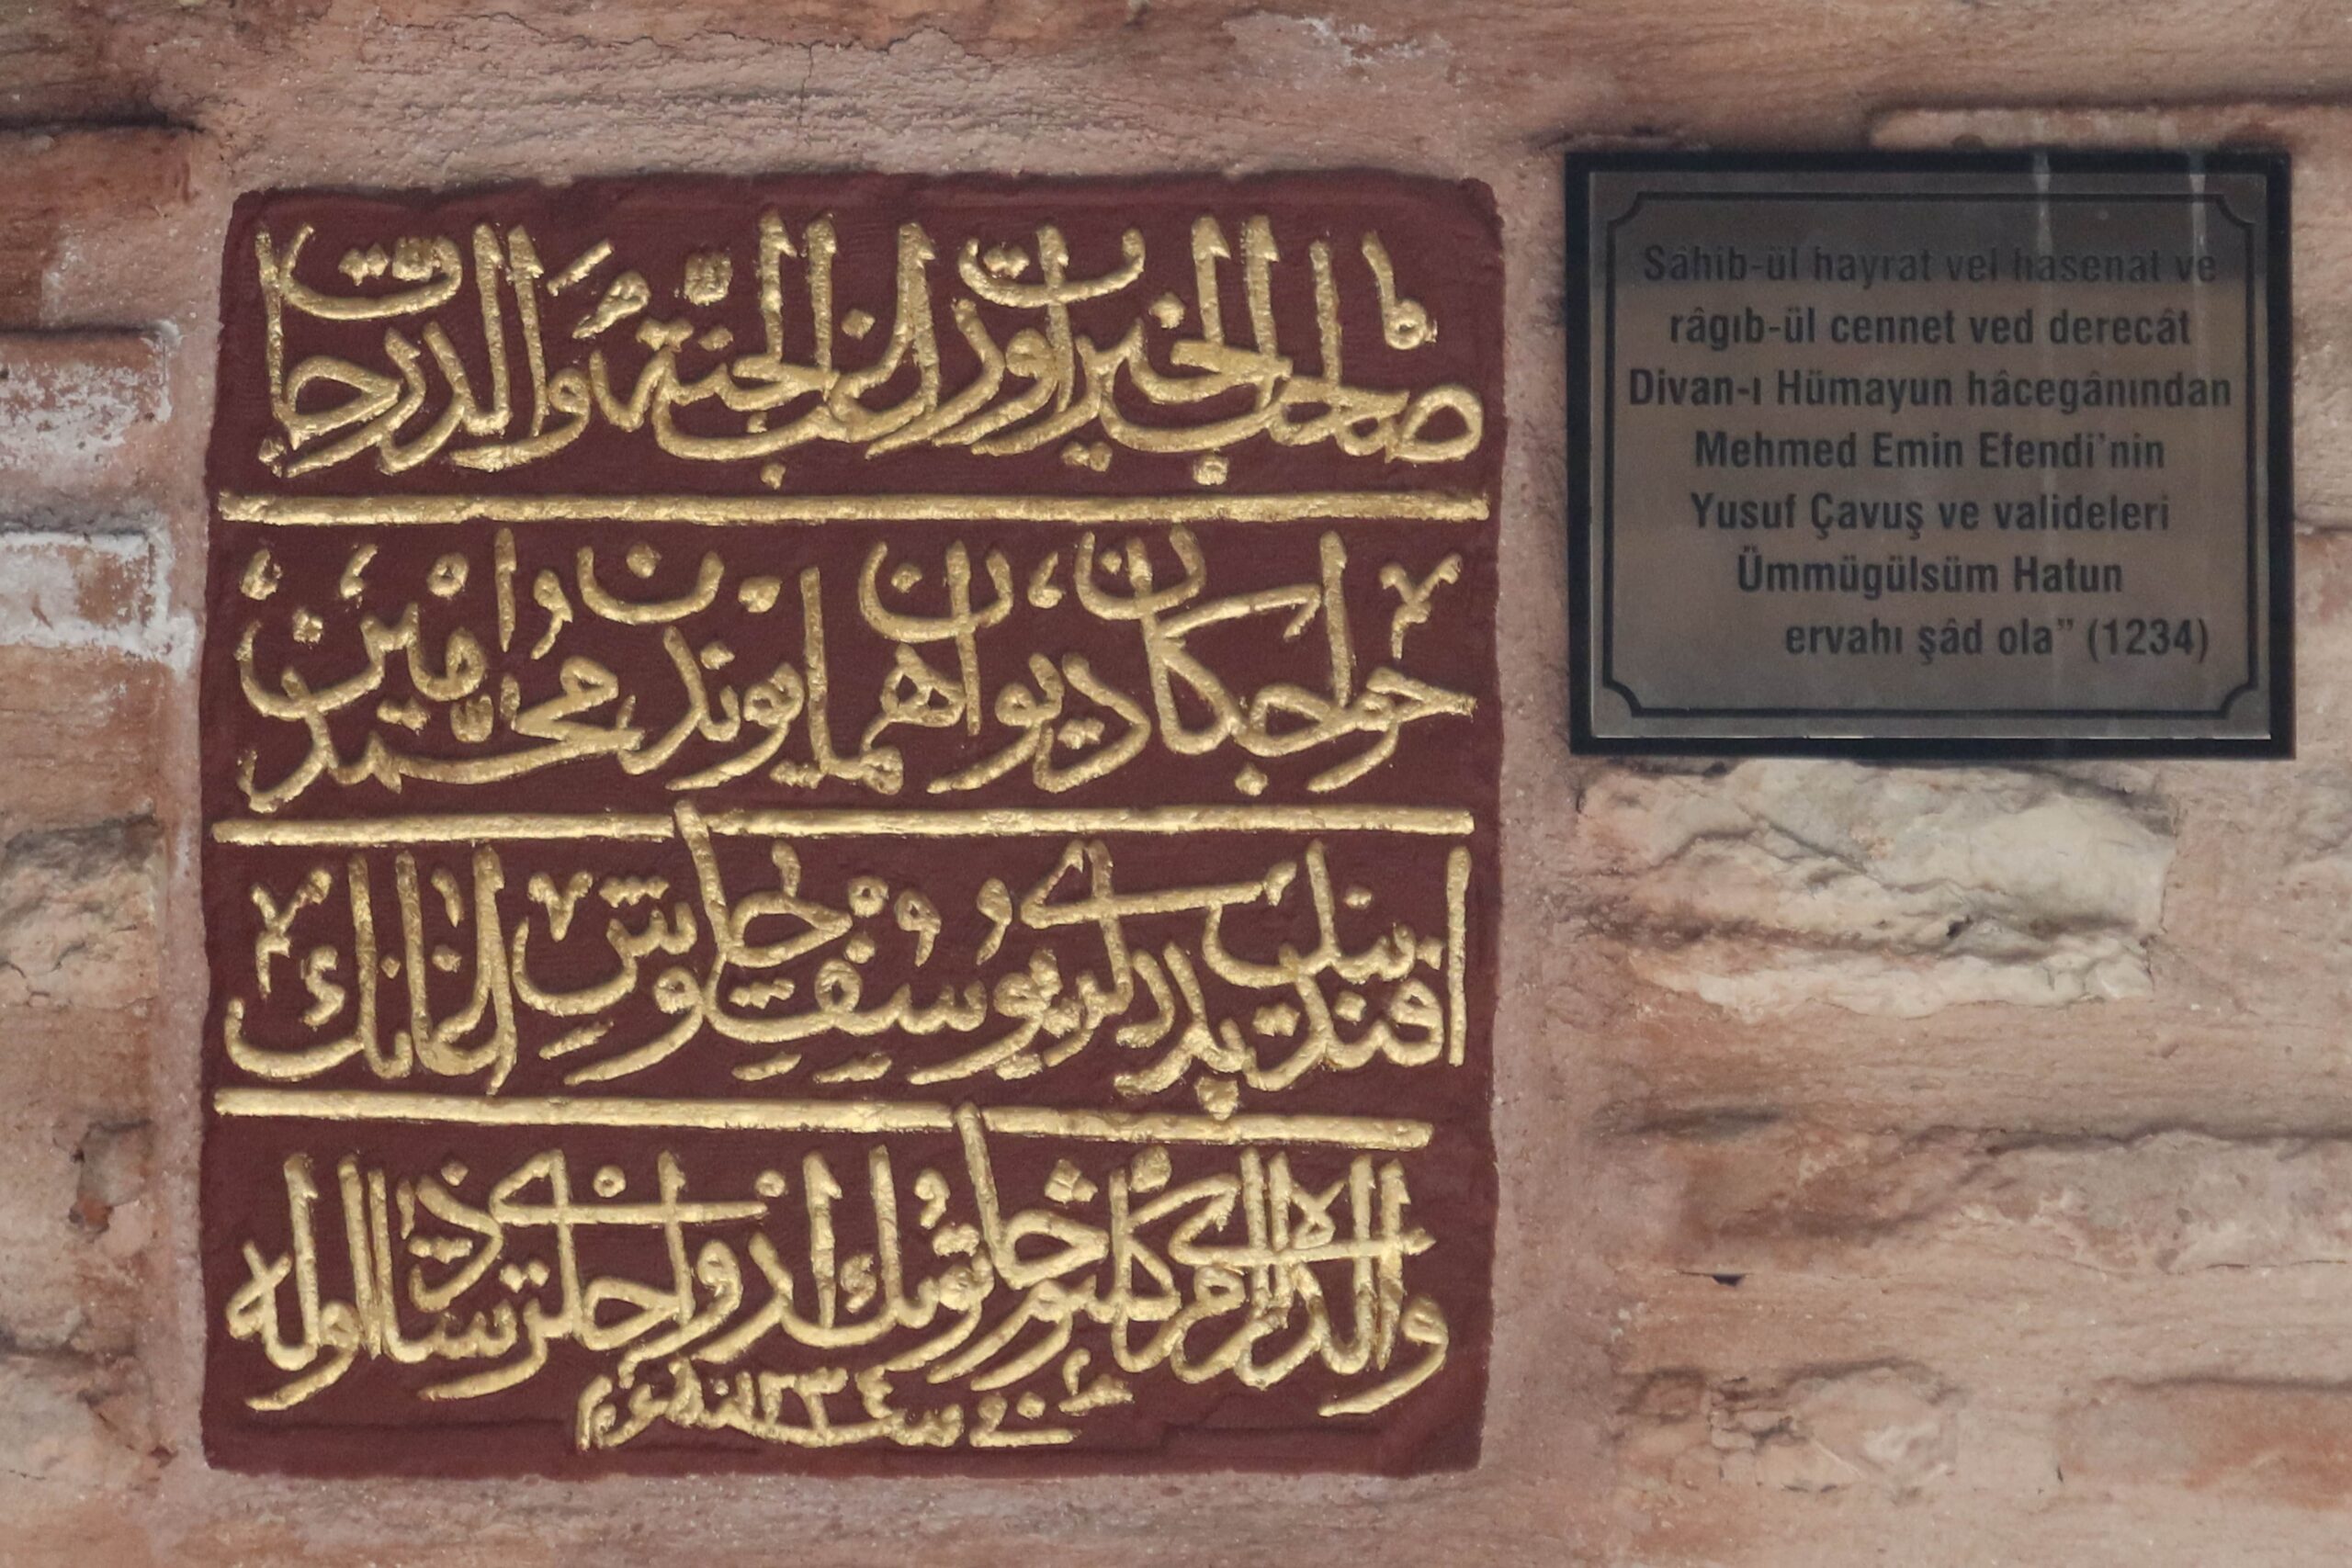 صاحب الخيرات و راغب الجنة والدرجات
خواجكان ديوان همايوندن محمد امين
افندينك پدرلرى يوسف چاوش
والدەلرى كلثوم خاتونك ارواحلرى شاد اوله
في سنة ١٢٣٤
Sâhib-ül hayrat vel hasenat ve
râgıb-ül cennet ved derecât
Divan-ı Hümayun hâcegânından
Mehmed Emin Efendi'nin
Yusuf Çavuş ve valideleri
Ümmügülsüm Hatun
ervahı şâd ola” (1234)